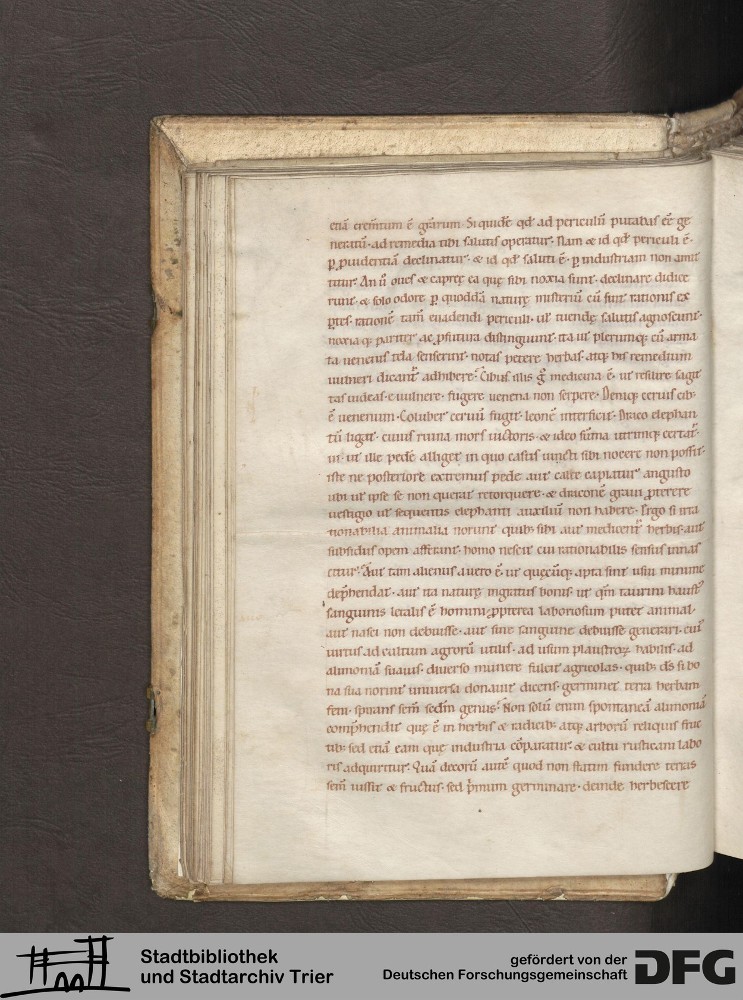 etiā crem̄tum ē grarum. Si quidē qd̄ ad periculū putabas eē ge
neratū. ad remedia tibi salutis operatur. Nam & id qd̄ periculi ē.
p̱ puidentiā declinatur. & id qd̄ saluti ē. p̱ industriam non amit
titur. An ū oues & capreę ea quę sibi noxia sunt. declinare didice
runt. & solo odore p̱ quoddā naturę misteriū cū sint rationis ex
p̱tes. rationē tam̄ euadendi periculi. ut tuendę salutis agnoscunt.
noxia q; pariter ac p̱futura distinguunt. ita ut plerumq; cū arma
ta uenenis tela senserint. notas petere herbas. atq; his remedium
uulneri dicant᷑ adhibere. Cibus illis g̊ medicina ē. ut resilire sagit
tas uideas. e uulnere. fugere uenena non serpere. Deniq; ceruis cib;
ē uenenum. Coluber ceruū fugit. leonē interficit. Draco elephan
tū ligat. cuius ruina mors uictoris. & ideo sūma utrimq; certat᷑.
ui. ut ille pedē alliget in quo casus uincti sibi nocere non possit.
iste ne posteriorē extremus pede aut calce capiatur angusto
ubi ut ipse se non queat retorquere. & draconē graui p̱terere
uestigio ut sequentis elephanti auxiliū non habere. Ergo si irra
tionabilia animalia norunt quib; sibi aut medicent᷑ herbis. aut
subsidiis opem afferant. homo nescit cui rationabilis sensus innas
citur. Aut tam alienus a uero ē. ut quęcūq; apta sint usui minime
dep̱hendat. aut ita naturę ingratus bonis. ut qm̄ taurini haust᷒
sanguinis letalis ē homini p̱pterea laboriosum putet animal.
aut nasci non debuisse. aut sine sanguine debuisse generari. cui᷒
uirtus ad cultum agrorū utilis. ad usum plaustroꝝ habilis. ad
alimoniā suauis. diuerso munere fulcit agricolas. quib; d̄s si bo
na sua norint uniuersa donauit dicens. germinet terra herbam
feni. spirans sem̄ scd̄m genus. Non solū enim spontaneā alimoniā
comp̱hendit quę ē in herbis & radicib; atq; arborū reliquis fruc
tib; sed etiā eam quę industria cōparatur. & cultu rusticam labo
ris adquiritur. Quā decorū autē quod non statim fundere terras
sem̄ iussit & fructus. sed p̱mum germinare. deinde herbescere
Stadtbibliothek
und Stadtarchiv Trier
gefördert von der
Deutschen Forschungsgemeinschaft
DFG